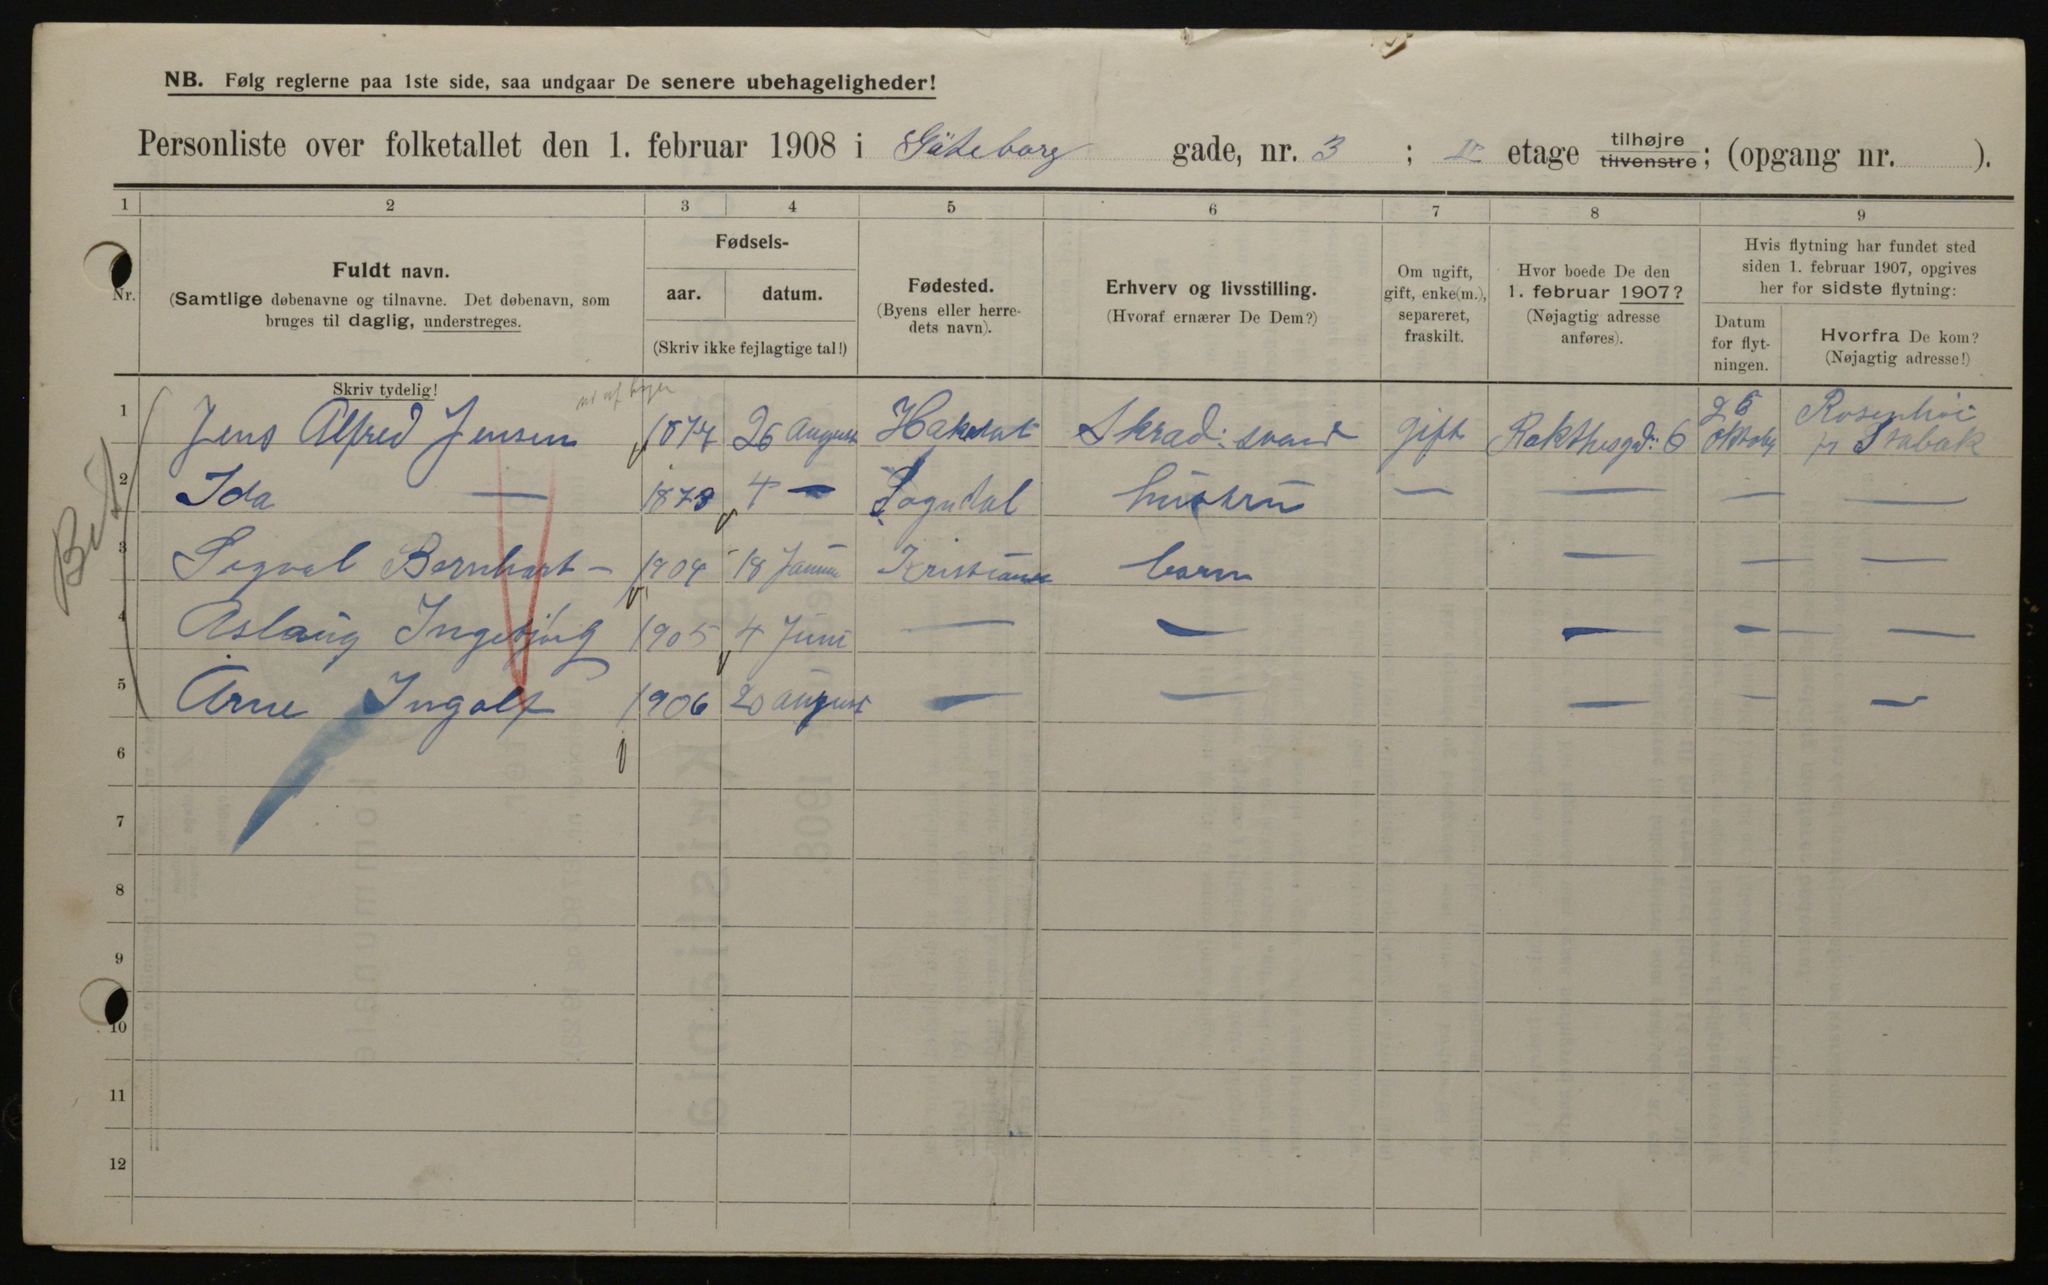 NB. Følg reglerne paa 1ste side, saa undgaar De senere ubehageligheder!
Personliste over folketallet den 1. februar 1908 i Göteborg gade, nr. 3; II etage tilhøjre tilvenstre; (opgang nr. ).
1 2 3 4 5 6 7 8 9
Nr.
Fuldt navn.
(Samtlige døbenavne og tilnavne. Det døbenavn, som
bruges til daglig, understreges.
Skriv tydelig!
Fødsels-
aar. datum.
(Skriv ikke fejlagtige tal!)
Fødested.
(Byens eller herre-
dets navn).
Erhverv og livsstilling.
(Hvoraf ernærer De Dem?)
Om ugift,
gift, enke(m.),
separeret,
fraskilt.
Hvor boede De den
1. februar 1907?
(Nøjagtig adresse
anføres).
Hvis flytning har fundet sted
siden 1. februar 1907, opgives
her for sidste flytning:
Datum
for flyt-
ningen.
Hvorfra De kom?
(Nøjagtig adresse!)
1 Jens Alfred Jensen 1874 26 august Skrad: svend gift 6 Oktober Stabak
2 Ida — 1873 4 — Sogndal hustru — — — —
3 Bernhart — 1904 18 Kristiania barn — — —
4 Aslaug Ingebjørg 1905 4 Juni — — — — —
5 Arne Ingolf 1906 20 august — — — — —
6
7
8
9
10
11
12